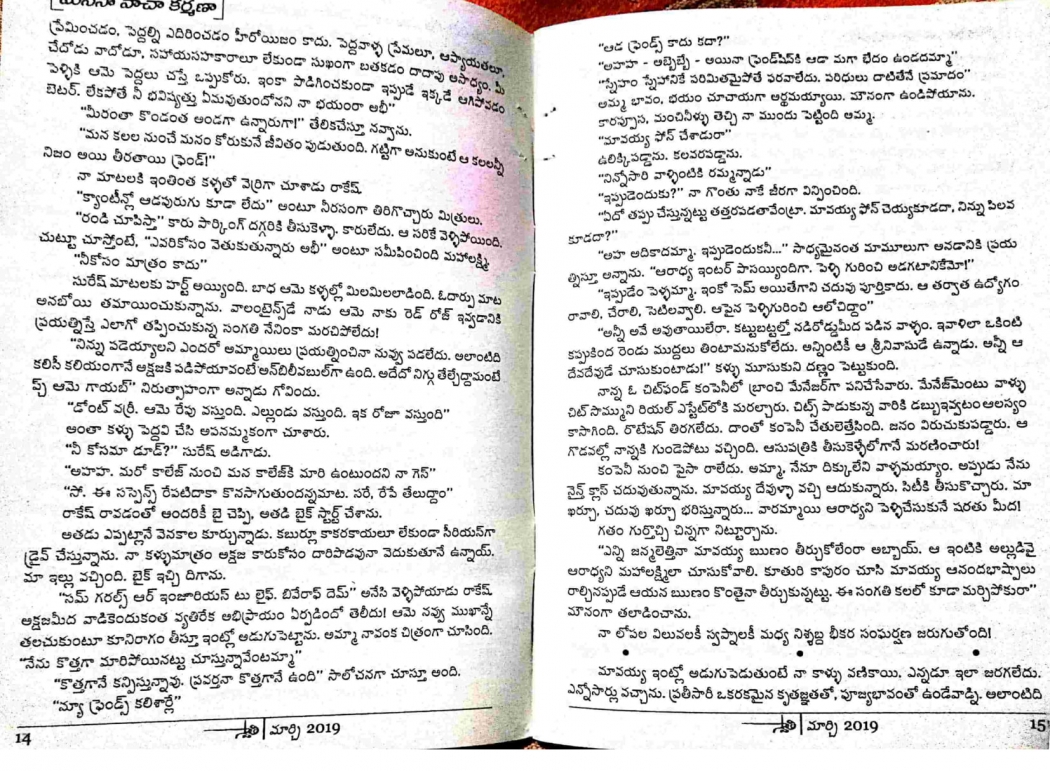 మనసా వాచా కర్మణా
ప్రేమించడం, పెద్దల్ని ఎదిరించడం హీరోయిజం కాదు. పెద్దవాళ్ళ ప్రేమలూ, ఆప్యాయతలూ,
చేదోడు వాదోడూ, సహాయసహకారాలూ లేకుండా సుఖంగా బతకడం దాదాపు అసాధ్యం. మీ
పెళ్ళికి ఆమె పెద్దలు చస్తే ఒప్పుకోరు. ఇంకా పొడిగించకుండా ఇప్పుడే ఇక్కడే ఆగిపోవడం
బెటర్. లేకపోతే నీ భవిష్యత్తు ఏమవుతుందోనని నా భయంరా అభీ"
"మీరంతా కొండంత అండగా ఉన్నారుగా!" తేలికచేస్తూ నవ్వాను.
"మన కలల నుంచే మనం కోరుకునే జీవితం పుడుతుంది. గట్టిగా అనుకుంటే ఆ కలలన్నీ
నిజం అయి తీరతాయి ఫ్రెండ్!"
నా మాటలకి ఇంతింత కళ్ళతో వెర్రిగా చూశాడు రాకేష్.
"క్యాంటీన్లో ఆడపురుగు కూడా లేదు" అంటూ నీరసంగా తిరిగొచ్చారు మిత్రులు.
"రండి చూపిస్తా" కారు పార్కింగ్ దగ్గరికి తీసుకెళ్ళా. కారులేదు. ఆ సరికే వెళ్ళిపోయింది.
చుట్టూ చూస్తోంటే, "ఎవరికోసం వెతుకుతున్నారు అభీ" అంటూ సమీపించింది మహాలక్ష్మి.
"నీకోసం మాత్రం కాదు"
సురేష్ మాటలకు హర్ట్ అయ్యింది. బాధ ఆమె కళ్ళల్లో మిలమిలలాడింది. ఓదార్పు మాట
అనబోయి తమాయించుకున్నాను. వాలంటైన్స్‌డే నాడు ఆమె నాకు రెడ్ రోజ్ ఇవ్వడానికి
ప్రయత్నిస్తే ఎలాగో తప్పించుకున్న సంగతి నేనింకా మరచిపోలేదు!
"నిన్ను పడెయ్యాలని ఎందరో అమ్మాయిలు ప్రయత్నించినా నువ్వు పడలేదు. అలాంటిది
కలిసీ కలియంగానే అక్షజకి పడిపోయావంటే అన్‌బిలీవబుల్‌గా ఉంది. అదేదో నిగ్గు తేల్చేద్దామంటే
ప్చ్ ఆమె గాయబ్" నిరుత్సాహంగా అన్నాడు గోవిందు.
"డోంట్ వర్రీ. ఆమె రేపు వస్తుంది. ఎల్లుండు వస్తుంది. ఇక రోజూ వస్తుంది"
అంతా కళ్ళు పెద్దవి చేసి అపనమ్మకంగా చూశారు.
"నీ కోసమా డూడ్?" సురేష్ అడిగాడు.
"అహహ. మరో కాలేజ్ నుంచి మన కాలేజ్‌కి మారి ఉంటుందని నా గెస్"
"సో. ఈ సస్పెన్స్ రేపటిదాకా కొనసాగుతుందన్నమాట. సరే, రేపే తేలుద్దాం"
రాకేష్ రావడంతో అందరికీ బై చెప్పి, అతడి బైక్ స్టార్ట్ చేశాను.
అతడు ఎప్పట్లానే వెనకాల కూర్చున్నాడు. కబుర్లూ కాకరకాయలూ లేకుండా సీరియస్‌గా
డ్రైవ్ చేస్తున్నాను. నా కళ్ళుమాత్రం అక్షజ కారుకోసం దారిపొడవునా వెదుకుతూనే ఉన్నాయ్.
మా ఇల్లు వచ్చింది. బైక్ ఇచ్చి దిగాను.
"సమ్ గరల్స్ ఆర్ ఇంజూరియస్ టు లైఫ్. బివేరాఫ్ దెమ్" అనేసి వెళ్ళిపోయాడు రాకేష్.
అక్షజమీద వాడికెందుకంత వ్యతిరేక అభిప్రాయం ఏర్పడిందో తెలీదు! ఆమె నవ్వు ముఖాన్నే
తలచుకుంటూ కూనిరాగం తీస్తూ ఇంట్లో అడుగుపెట్టాను. అమ్మా నావంక చిత్రంగా చూసింది.
"నేను కొత్తగా మారిపోయినట్టు చూస్తున్నావేంటమ్మా"
"కొత్తగానే కన్పిస్తున్నావు. ప్రవర్తనా కొత్తగానే ఉంది" సాలోచనగా చూస్తూ అంది.
"న్యూ ఫ్రెండ్స్ కలిశార్లే"
14
స్వాతి | మార్చి 2019
"ఆడ ఫ్రెండ్స్ కాదు కదా?"
"అహహ - అబ్బెబ్బే - అయినా ఫ్రెండ్‌షిప్‌కి ఆడా మగా భేదం ఉండదమ్మా"
"స్నేహం స్నేహానికే పరిమితమైపోతే ఫరవాలేదు. పరిధులు దాటితేనే ప్రమాదం"
అమ్మ భావం, భయం చూచాయగా అర్థమయ్యాయి. మౌనంగా ఉండిపోయాను.
కారప్పూస, మంచినీళ్ళు తెచ్చి నా ముందు పెట్టింది అమ్మ.
"మావయ్య ఫోన్ చేశాడురా"
ఉలిక్కిపడ్డాను. కలవరపడ్డాను.
"నిన్నోసారి వాళ్ళింటికి రమ్మన్నాడు"
"ఇప్పుడెందుకు?" నా గొంతు నాకే జీరగా విన్పించింది.
"ఏదో తప్పు చేస్తున్నట్టు తత్తరపడతావేంట్రా. మావయ్య ఫోన్ చెయ్యకూడదా, నిన్ను పిలవ
కూడదా?"
"అహ అదికాదమ్మా. ఇప్పుడెందుకనీ..." సాధ్యమైనంత మామూలుగా అనడానికి ప్రయ
త్నిస్తూ అన్నాను. "ఆరాధ్య ఇంటర్ పాసయ్యిందిగా. పెళ్ళి గురించి అడగటానికేమో!"
"ఇప్పుడేం పెళ్ళమ్మా. ఇంకో సెమ్ అయితేగాని చదువు పూర్తికాదు. ఆ తర్వాత ఉద్యోగం
రావాలి, చేరాలి, సెటిలవ్వాలి. ఆపైన పెళ్ళిగురించి ఆలోచిద్దాం"
"అన్నీ అవే అవుతాయిలేరా. కట్టుబట్టల్తో నడిరోడ్డుమీద పడిన వాళ్ళం. ఇవాళిలా ఒకింటి
కప్పుకింద రెండు ముద్దలు తింటామనుకోలేదు. అన్నింటికీ ఆ శ్రీనివాసుడే ఉన్నాడు. అన్నీ ఆ
దేవదేవుడే చూసుకుంటాడు!" కళ్ళు మూసుకుని దణ్ణం పెట్టుకుంది.
నాన్న ఓ చిట్‌ఫండ్ కంపెనీలో బ్రాంచి మేనేజర్‌గా పనిచేసేవారు. మేనేజ్‌మెంటు వాళ్ళు
చిట్ సొమ్ముని రియల్ ఎస్టేట్‌లోకి మరల్చారు. చిట్స్ పాడుకున్న వారికి డబ్బుఇవ్వటం ఆలస్యం
కాసాగింది. రొటేషన్ తిరగలేదు. దాంతో కంపెనీ చేతులెత్తేసింది. జనం విరుచుకుపడ్డారు. ఆ
గొడవల్లో నాన్నకి గుండెపోటు వచ్చింది. ఆసుపత్రికి తీసుకెళ్ళేలోగానే మరణించారు!
కంపెనీ నుంచి పైసా రాలేదు. అమ్మా, నేనూ దిక్కులేని వాళ్ళమయ్యాం. అప్పుడు నేను
నైన్త్ క్లాస్ చదువుతున్నాను. మావయ్య దేవుళ్ళా వచ్చి ఆదుకున్నారు. సిటీకి తీసుకొచ్చారు. మా
ఖర్చూ, చదువు ఖర్చూ భరిస్తున్నారు... వారమ్మాయి ఆరాధ్యని పెళ్ళిచేసుకునే షరతు మీద!
గతం గుర్తొచ్చి చిన్నగా నిట్టూర్చాను.
"ఎన్ని జన్మలెత్తినా మావయ్య ఋణం తీర్చుకోలేంరా అబ్బాయ్. ఆ ఇంటికి అల్లుడివై
ఆరాధ్యని మహాలక్ష్మిలా చూసుకోవాలి. కూతురి కాపురం చూసి మావయ్య ఆనందభాష్పాలు
రాల్చినప్పుడే ఆయన ఋణం కొంతైనా తీర్చుకున్నట్టు. ఈ సంగతి కలలో కూడా మర్చిపోకురా"
మౌనంగా తలాడించాను.
నా లోపల విలువలకీ స్వప్నాలకీ మధ్య నిశ్శబ్ద భీకర సంఘర్షణ జరుగుతోంది!
• • •
మావయ్య ఇంట్లో అడుగుపెడుతుంటే నా కాళ్ళు వణికాయి, ఎన్నడూ ఇలా జరగలేదు.
ఎన్నోసార్లు వచ్చాను. ప్రతీసారీ ఒకరకమైన కృతజ్ఞతతో, పూజ్యభావంతో ఉండేవాడ్ని. అలాంటిది
స్వాతి | మార్చి 2019
15